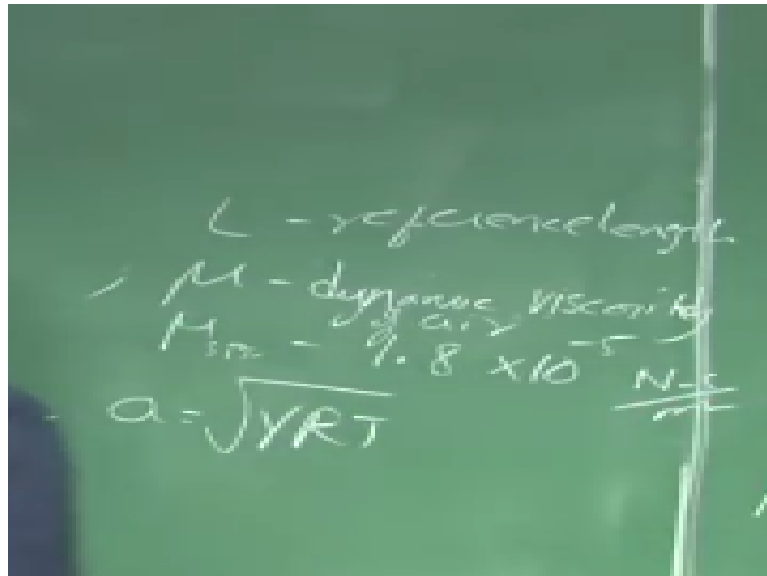 L - reference length
, μ - dynamic viscosity
of air
- 9.8 × 10⁻⁵
- a = √γRT